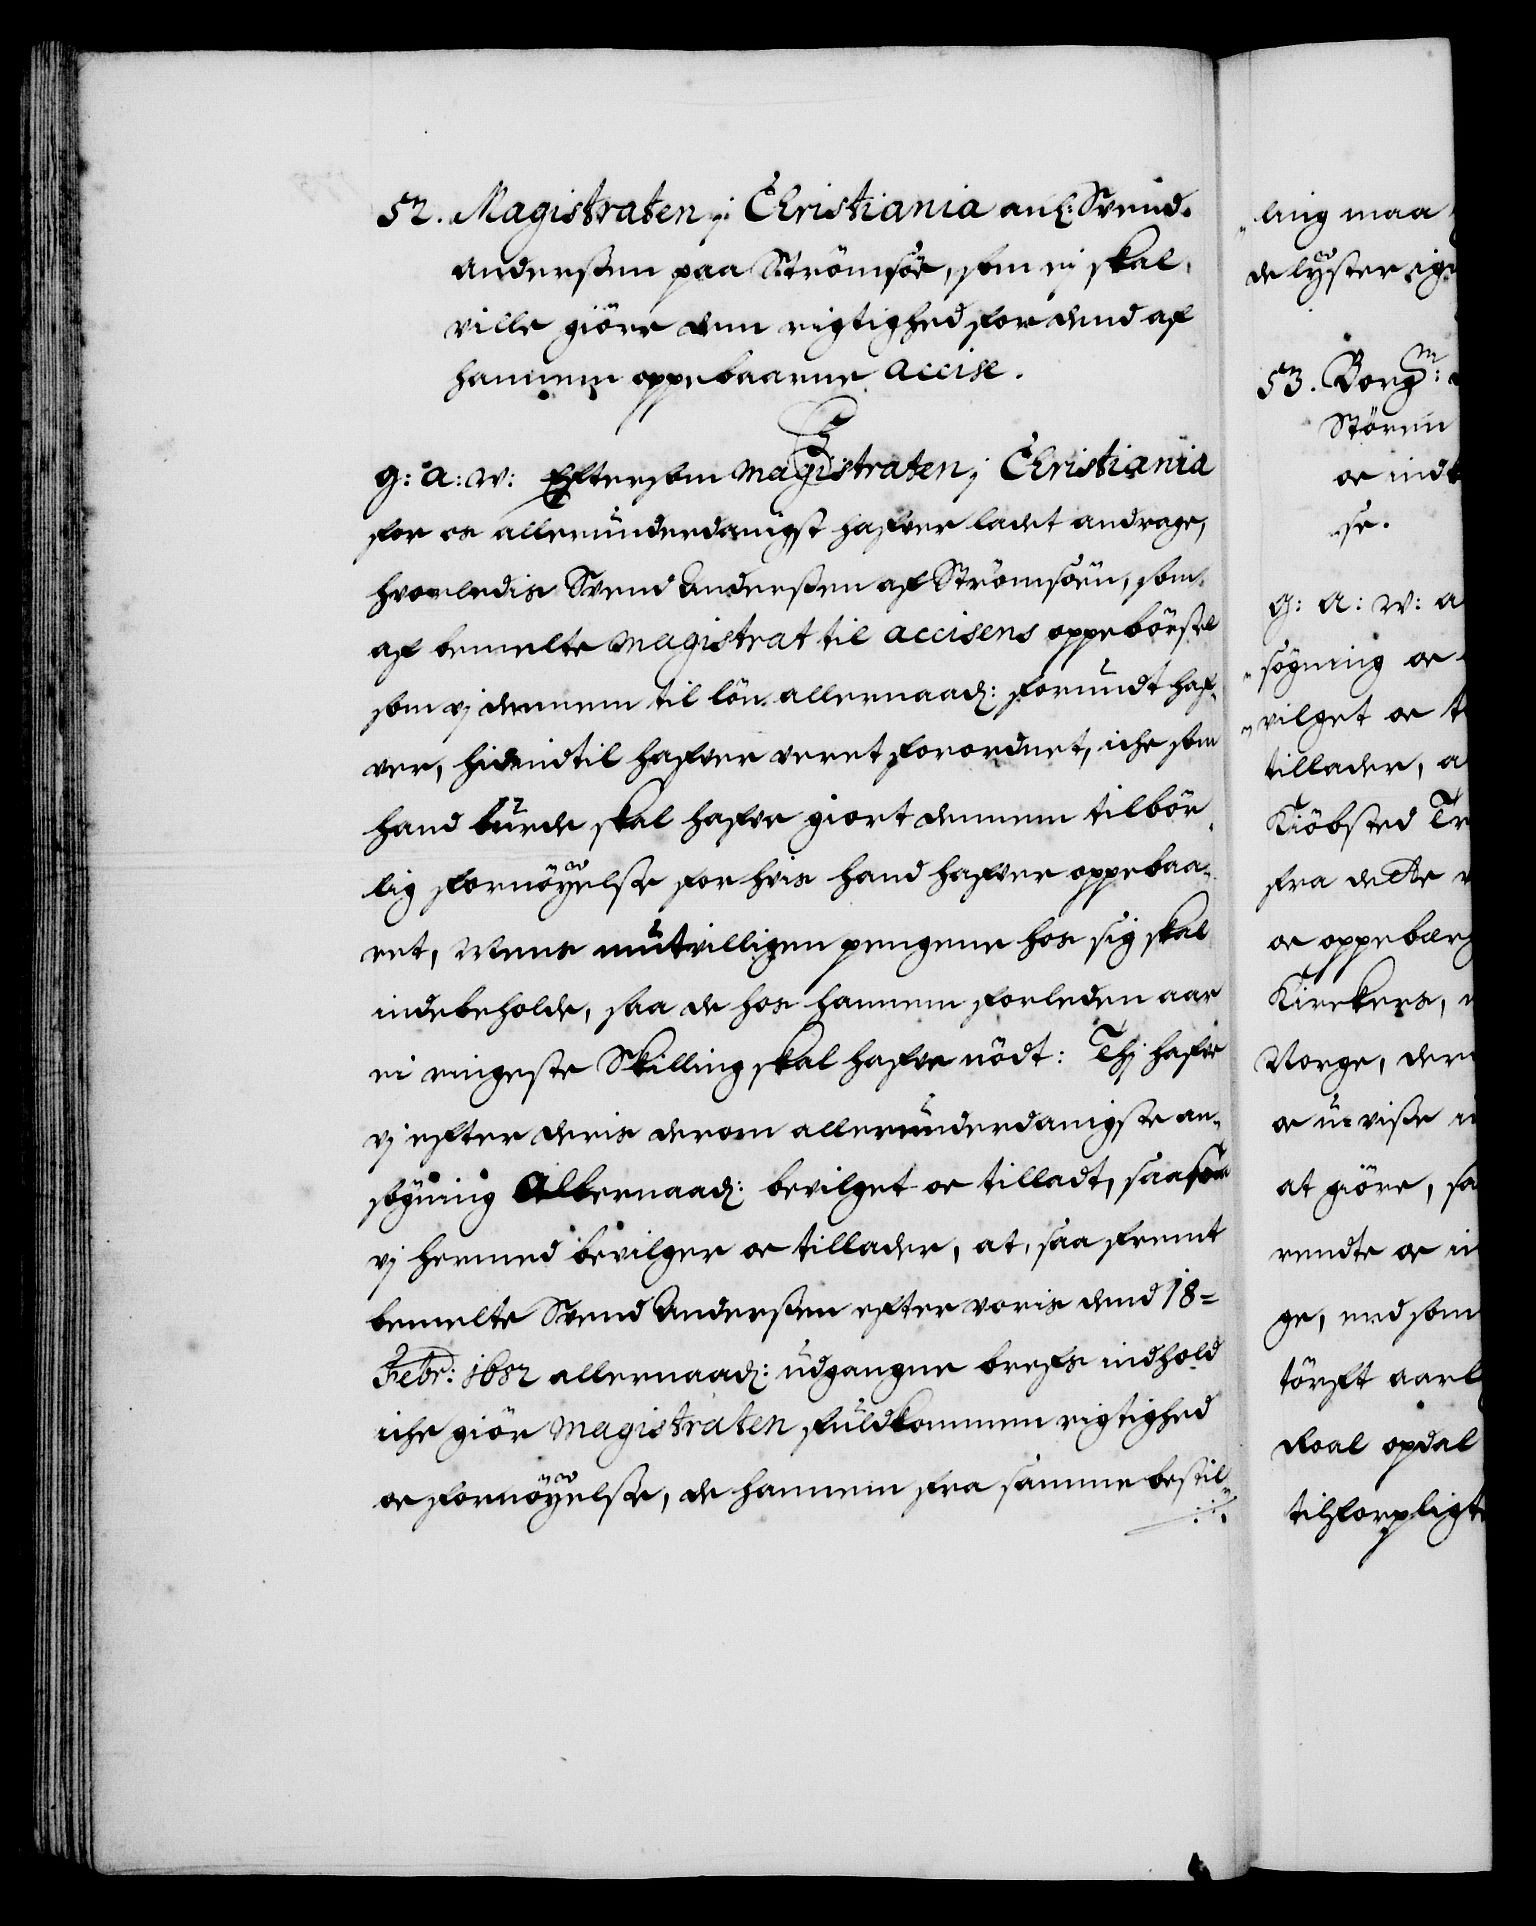 52. Magistraten i Christiania anl: Svend
Anderßen paa Strömsöe, som ej skal
ville giöre dem rigtighed for dend af
hannem oppebaarne accise.
G: A: W: Eftersom Magistraten i Christiania
for os allerunderdanigst hafver ladet andrage,
hvorledis Svend Anderßen af Strömsöen, som
af bemelte Magistrat til accisens oppebörsel
som vj dennem til lön allernaad: forundt haf-
ver, hidindtil hafver veret forordnet, iche som
hand burde skal hafve giort dennem tilbör-
lig fornöyelße for hvis hand hafver oppebaa-
ret, Mens mutvilligen pengene hos sig skal
indebeholde, saa de hos hannem forleden aar
ei ringeste Skilling skal hafve nödt: Thj hafve
vj efter deris derom allerunderdanigste an-
sögning Allernaad: bevilget oc tilladt, saasom
vj hermed bevilger oc tillader, at, saa fremt
bemelte Svend Anderßen efter voris dend 18=
Febr: 1682 allernaad: udgangne brefs indhold
iche giör Magistraten fuldkommen rigtighed
oc fornöyelße, de hannem fra samme bestil-
ling maa
de lyster ige
53. Borgm:
Stören
oc indt
se.
G: A: W: a
sögning oc
vilget oc t
tillader, a
Kiöbsted Tr
fra dette
oc oppebær
Kirckers,
Norge, der
oc uvisse
at giöre, sa
rendte oc in
ge, end som
törft aarl
Roal opdal
tilforpligt